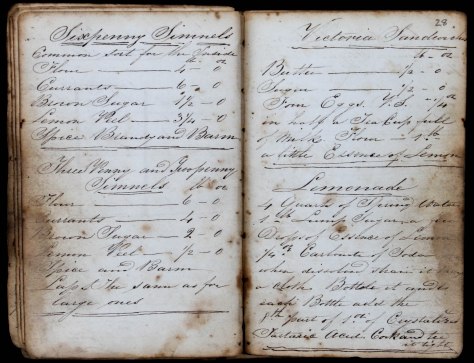 Sixpenny Simnels
Common Sort for the Inside
lb oz
Flour 4 - 0
Currants 6 - 0
Brown Sugar 1 1/2 - 0
Lemon Peel 3/4 - 0
Spice Brandy and Barm
Three Penny and Twopenny
Simnels lb oz
Flour 6 - 0
Currants 4 - 0
Brown Sugar 2 - 0
Lemon Peel 1/2 - 0
Spice and Barm
same as for
large ones
28
Victoria Sandwiches
lb - oz
Butter 1/2 - 0
Sugar 1/2 - 0
Four Eggs.
in half a Tea Cup full
of Milk Flour
a little Essence of Lemon
Lemonade
4 Quarts of Spring Water
1 lb Lump Sugar a few
Drops of Essence of Lemon
1/4 oz Carbonate of Soda
when dissolved strain it through
a cloth Bottle it
each Bottle add the
8th part of 1 oz Crystalized
Tartaric Acid. Cork and tie
it tight